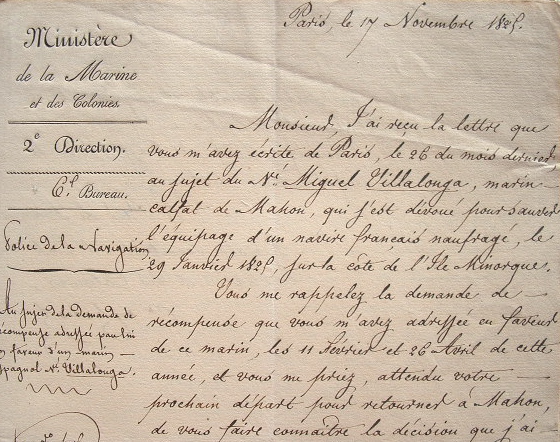 Paris, le 17 Novembre 1825.
Ministère
de la Marine
et des Colonies.
2e Direction.
Bureau.
Police de la Navigation
Au sujet de la demande de
récompense adressée par lui
en faveur d'un marin
Espagnol Né. Villalonga.
Monsieur, J'ai reçu la lettre que
vous m'avez écrite de Paris, le 26 du mois dernier
au sujet du Né. Miguel Villalonga, marin
calfat de Mahon, qui s'est dévoué pour sauver
l'équipage d'un navire français naufragé, le
29 Janvier 1825, sur la côte de l'Ile Minorque.
Vous me rappelez la demande de
récompense que vous m'avez adressée en faveur
de ce marin, les 11 Février et 26 Avril de cette
année, et vous me priez, attendu votre
prochain départ pour retourner à Mahon,
de vous faire connaître la décision que j'ai